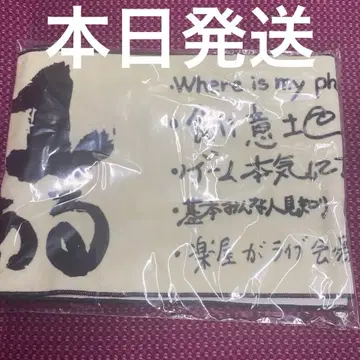 本日発送
・Where is my ph
・食い意地
・ゲーム本気
・基本みんな人見知り
・楽屋がライブ会場